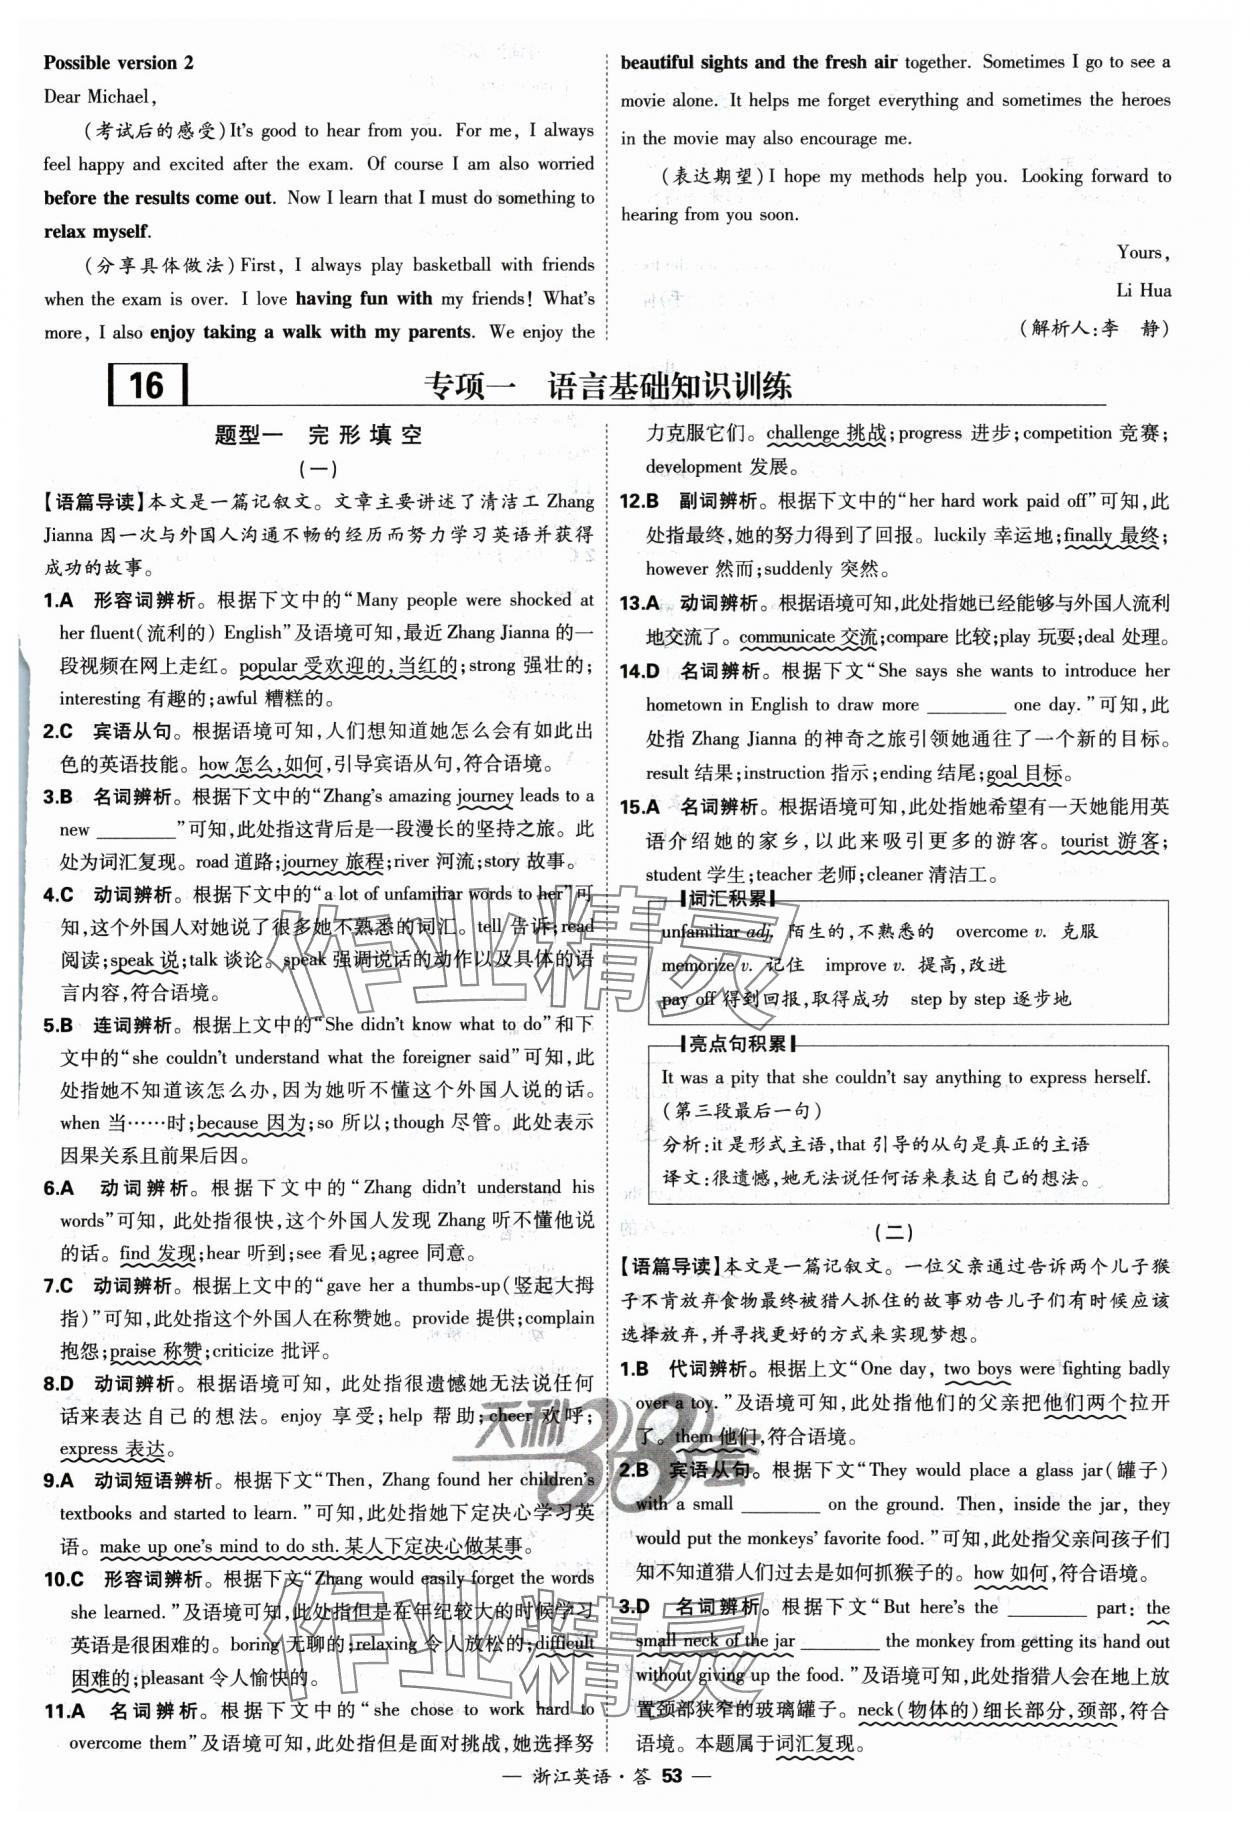 Possible version 2
Dear Michael,
(考试后的感受)It's good to hear from you. For me, I always
feel happy and excited after the exam. Of course I am also worried
before the results come out. Now I learn that I must do something to
relax myself.
(分享具体做法)First, I always play basketball with friends
when the exam is over. I love having fun with my friends! What's
more, I also enjoy taking a walk with my parents. We enjoy the
beautiful sights and the fresh air together. Sometimes I go to see a
movie alone. It helps me forget everything and sometimes the heroes
in the movie may also encourage me.
(表达期望)I hope my methods help you. Looking forward to
hearing from you soon.
Yours,
Li Hua
(解析人:李 静)
16 专项一 语言基础知识训练
题型一 完形填空
(一)
【语篇导读】本文是一篇记叙文。文章主要讲述了清洁工 Zhang
Jianna 因一次与外国人沟通不畅的经历而努力学习英语并获得
成功的故事。
1.A 形容词辨析。根据下文中的“Many people were shocked at
her fluent(流利的) English”及语境可知,最近 Zhang Jianna 的一
段视频在网上走红。popular 受欢迎的,当红的;strong 强壮的;
interesting 有趣的;awful 糟糕的。
2.C 宾语从句。根据语境可知,人们想知道她怎么会有如此出
色的英语技能。how 怎么,如何,引导宾语从句,符合语境。
3.B 名词辨析。根据下文中的“Zhang's amazing journey leads to a
new ________”可知,此处指这背后是一段漫长的坚持之旅。此
处为词汇复现。road 道路;journey 旅程;river 河流;story 故事。
4.C 动词辨析。根据下文中的“a lot of unfamiliar words to her”可
知,这个外国人对她说了很多她不熟悉的词汇。tell 告诉;read
阅读;speak 说;talk 谈论。speak 强调说话的动作以及具体的语
言内容,符合语境。
5.B 连词辨析。根据上文中的“She didn't know what to do”和下
文中的“she couldn't understand what the foreigner said”可知,此
处指她不知道该怎么办,因为她听不懂这个外国人说的话。
when 当……时;because 因为;so 所以;though 尽管。此处表示
因果关系且前果后因。
6.A 动词辨析。根据下文中的“Zhang didn't understand his
words”可知,此处指很快,这个外国人发现 Zhang 听不懂他说
的话。find 发现;hear 听到;see 看见;agree 同意。
7.C 动词辨析。根据上文中的“gave her a thumbs-up(竖起大拇
指)”可知,此处指这个外国人在称赞她。provide 提供;complain
抱怨;praise 称赞;criticize 批评。
8.D 动词辨析。根据语境可知,此处指很遗憾她无法说任何
话来表达自己的想法。enjoy 享受;help 帮助;cheer 欢呼;
express 表达。
9.A 动词短语辨析。根据下文“Then, Zhang found her children's
textbooks and started to learn.”可知,此处指她下定决心学习英
语。make up one's mind to do sth.某人下定决心做某事。
10.C 形容词辨析。根据下文“Zhang would easily forget the words
she learned.”及语境可知,此处指但是在年纪较大的时候学习
英语是很困难的。boring 无聊的;relaxing 令人放松的;difficult
困难的;pleasant 令人愉快的。
11.A 名词辨析。根据下文中的“she chose to work hard to
overcome them”及语境可知,此处指但是面对挑战,她选择努
力克服它们。challenge 挑战;progress 进步;competition 竞赛;
development 发展。
12.B 副词辨析。根据下文中的“her hard work paid off”可知,此
处指最终,她的努力得到了回报。luckily 幸运地;finally 最终;
however 然而;suddenly 突然。
13.A 动词辨析。根据语境可知,此处指她已经能够与外国人流利
地交流了。communicate 交流;compare 比较;play 玩耍;deal 处理。
14.D 名词辨析。根据下文“She says she wants to introduce her
hometown in English to draw more ________ one day.”可知,此
处指 Zhang Jianna 的神奇之旅引领她通往了一个新的目标。
result 结果;instruction 指示;ending 结尾;goal 目标。
15.A 名词辨析。根据语境可知,此处指她希望有一天她能用英
语介绍她的家乡,以此来吸引更多的游客。tourist 游客;
student 学生;teacher 老师;cleaner 清洁工。
词汇积累
unfamiliar adj. 陌生的,不熟悉的 overcome v. 克服
memorize v. 记住 improve v. 提高,改进
pay off 得到回报,取得成功 step by step 逐步地
亮点句积累
It was a pity that she couldn't say anything to express herself.
(第三段最后一句)
分析:it 是形式主语,that 引导的从句是真正的主语
译文:很遗憾,她无法说任何话来表达自己的想法。
(二)
【语篇导读】本文是一篇记叙文。一位父亲通过告诉两个儿子猴
子不肯放弃食物最终被猎人抓住的故事劝告儿子们有时候应该
选择放弃,并寻找更好的方式来实现梦想。
1.B 代词辨析。根据上文“One day, two boys were fighting badly
over a toy.”及语境可知,此处指他们的父亲把他们两个拉开
了。them 他们,符合语境。
2.B 宾语从句。根据下文“They would place a glass jar(罐子)
with a small ________ on the ground. Then, inside the jar, they
would put the monkeys' favorite food.”可知,此处指父亲问孩子们
知不知道猎人们过去是如何抓猴子的。how 如何,符合语境。
3.D 名词辨析。根据下文“But here's the ________ part: the
small neck of the jar ________ the monkey from getting its hand out
without giving up the food.”及语境可知,此处指猎人会在地上放
置颈部狭窄的玻璃罐子。neck(物体的)细长部分,颈部,符合
语境。本题属于词汇复现。
作业精灵
天利38套
作业精灵
— 浙江英语·答 53 —